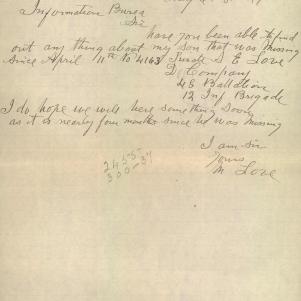 Information Bureau
Sir
have you been able to find
out any thing about my son that was missing
since April 11th No 4163 Private S E Love
D Company
48 Battalion
12 Inf Brigade
I do hope we will here something soon
as it is nearly four months since he was missing
I am sir
Yours
M Love